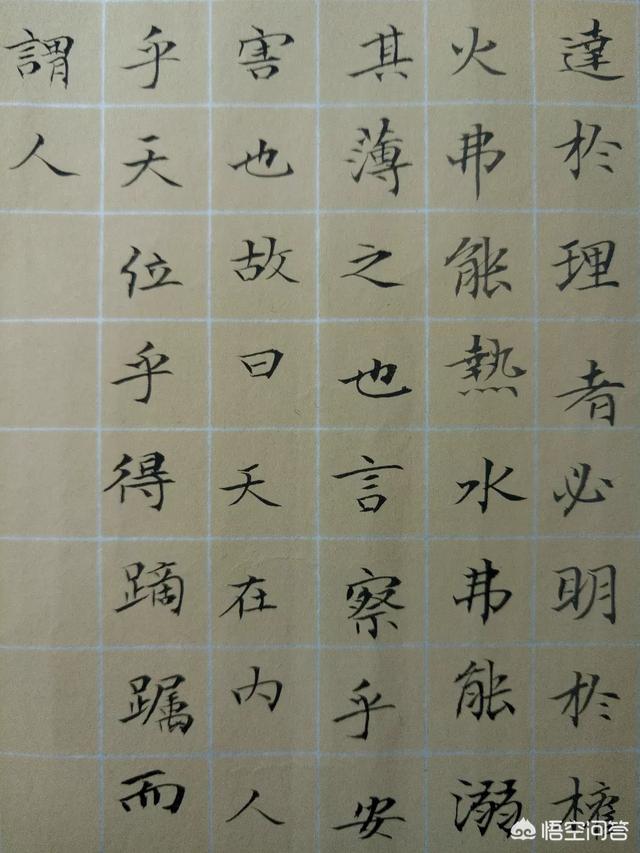 達於理者必明於權
火弗能熱水弗能溺
其薄之也言察乎安
害也故曰天在内人
乎天位乎得蹢躅而
謂人
悟空问答